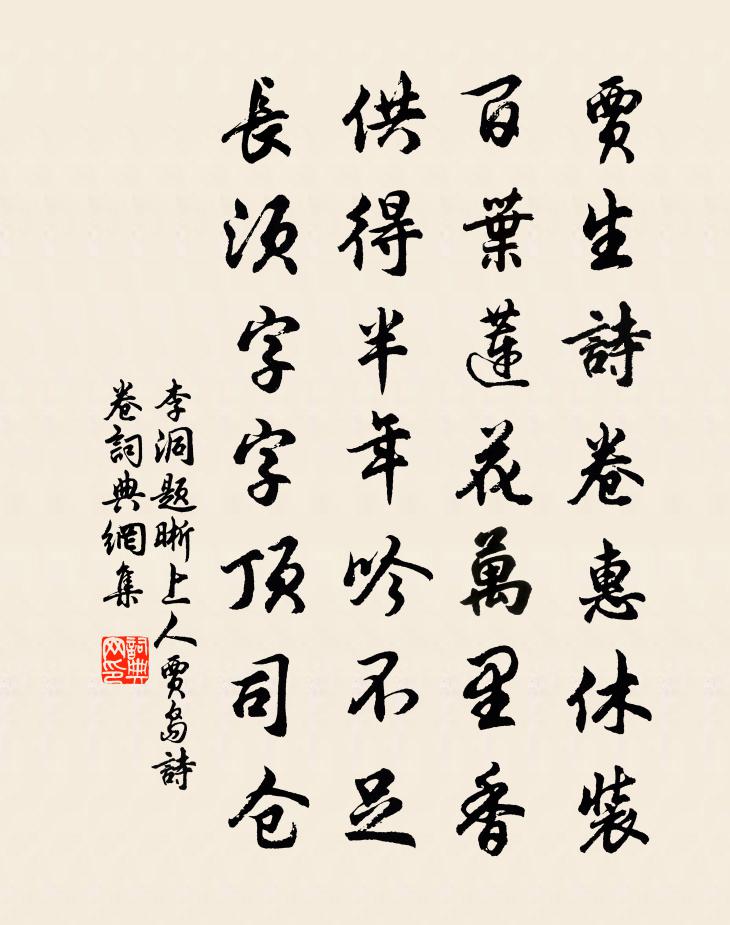 賈生詩卷惠休裝
百葉蓮花萬里香
供得半年吟不足
長須字字頂司仓
李洞題晰上人賈島詩
卷詞典網集
詞典网印